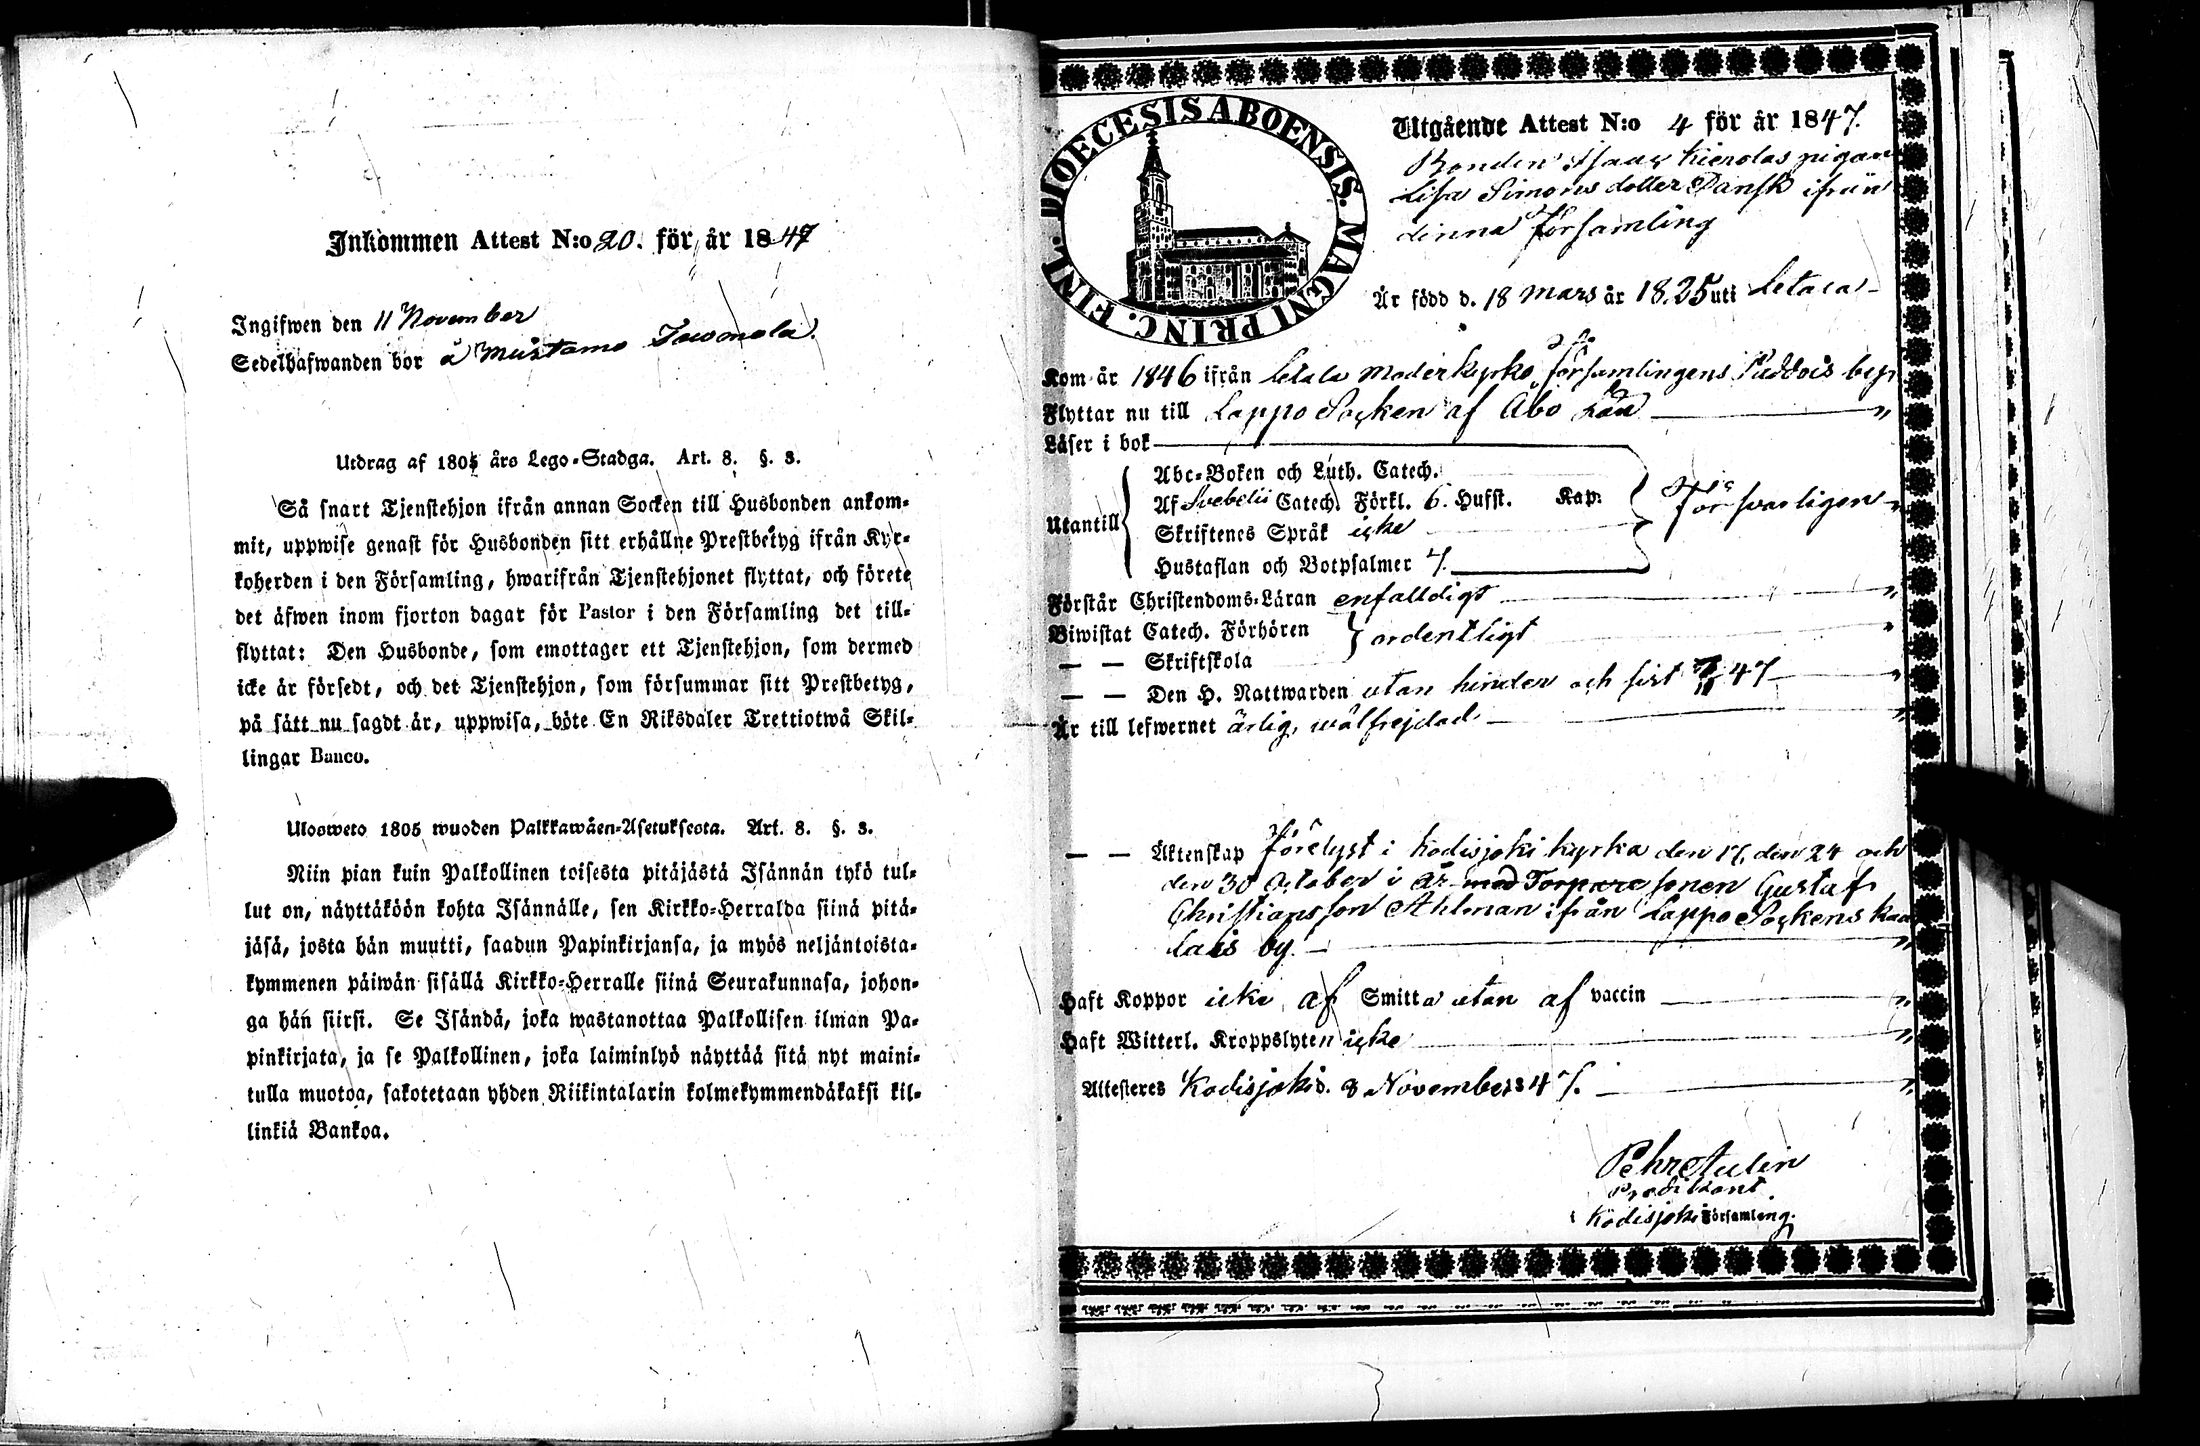 Inkommen Attest N:o 20. för år 1847
Ingifwen den 11 November
Sedelhafwanden bor å Mustamo
Utdrag af 1805 års Lego-Stadga. Art. 8. §. 3.
Så snart Tjenstehjon ifrån annan Socken till Husbonden ankom-
mit, uppwise genast för Husbonden sitt erhållne Prestbetyg ifrån Kyr-
koherden i den Församling, hwarifrån Tjenstehjonet flyttat, och förete
det äfwen inom fjorton dagar för Pastor i den Församling det till-
flyttat: Den Husbonde, som emottager ett Tjenstehjon, som dermed
icke är försedt, och det Tjenstehjon, som försummar sitt Prestbetyg,
på sätt nu sagdt är, uppwisa, böte En Riksdaler Trettiotwå Skil-
lingar Banco.
Ulosweto 1805 wuoden Palkkawäen-Asetuksesta. Art. 8. §. 3.
Niin pian kuin Palkollinen toisesta pitäjästä Isännän tykö tul-
lut on, näyttäköön kohta Isännälle, sen Kirkko-Herralda siinä pitä-
jäsä, josta hän muutti, saadun Papinkirjansa, ja myös neljäntoista-
kymmenen päiwän sisällä Kirkko-Herralle siinä Seurakunnasa, johon-
ga hän siirsi. Se Isändä, joka wastanottaa Palkollisen ilman Pa-
pinkirjata, ja se Palkollinen, joka laiminlyö näyttää sitä nyt maini-
tulla muotoa, sakotetaan yhden Riikintalarin kolmekymmendäkaksi kil-
linkiä Bankoa.
DIOECESIS ABOENSIS. MAGNI PRINC. FINL.
Utgående Attest N:o 4 för år 1847.
Bonden Isaac Kierolas pigan
Lisa Simonsdotter Dansk ifrån
denna församling
Är född d. 18 Mars år 1825 uti Letala
Kom år 1846 ifrån Letala Moderkyrko församlingens Puddois by
Flyttar nu till Lappo Socken af Åbo Län
Läser i bok
Utantill
Abc-Boken och Luth. Catech.
Af Svebelii Catech. Förkl. 6. Hufst. Kap.
Skriftenes Språk icke
Hustaflan och Botpsalmer 7.
försvarligen
Förstår Christendoms-Läran enfalldigt
Biwistat Catech. Förhören
— — Skriftskola
ordentligt
— — Den H. Nattwarden utan hinder och sist 47
Är till lefwernet ärlig, wälfrejdad
— — Äktenskap förelyst i Kodisjoki kyrka den 17, den 24 och
den 30 October i år med Torpare sonen Gustaf
Christiansson Ahlman ifrån Lappo Sockens Kaa
lais by.
Haft Koppor icke af Smitta utan af vaccin
Haft Witterl. Kroppslyten icke
Attesteres Kodisjoki d. 3 November 1847.
Pehr Aulin
Predikant
i Kodisjoki Församling.